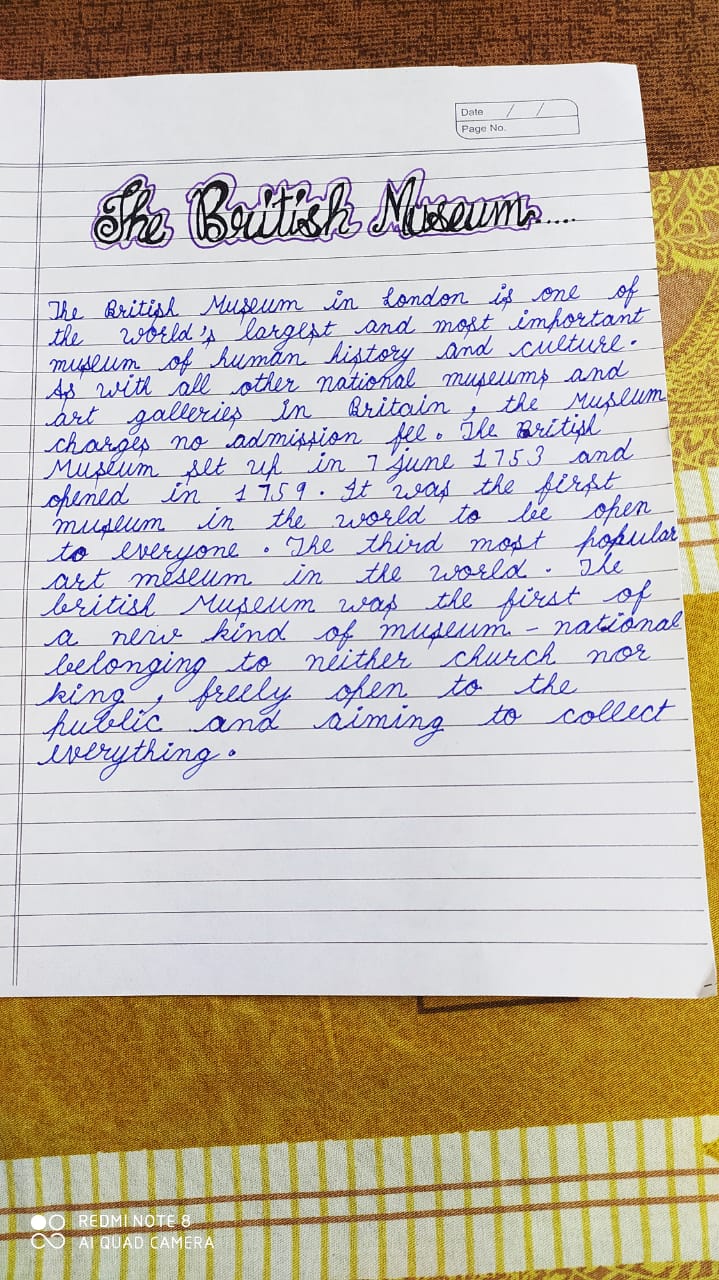 Date / /
Page No.
The British Museum.....
The British Museum in London is one of
the world's largest and most important
museum of human history and culture.
As with all other national museums and
art galleries in Britain, the Museum
charges no admission fee. The British
Museum set up in 7 june 1753 and
opened in 1759. It was the first
museum in the world to be open
to everyone. The third most popular
art meseum in the world. The
british Museum was the first of
a new kind of museum - national
belonging to neither church nor
king, freely open to the
public and aiming to collect
everything.
REDMI NOTE 8
AI QUAD CAMERA